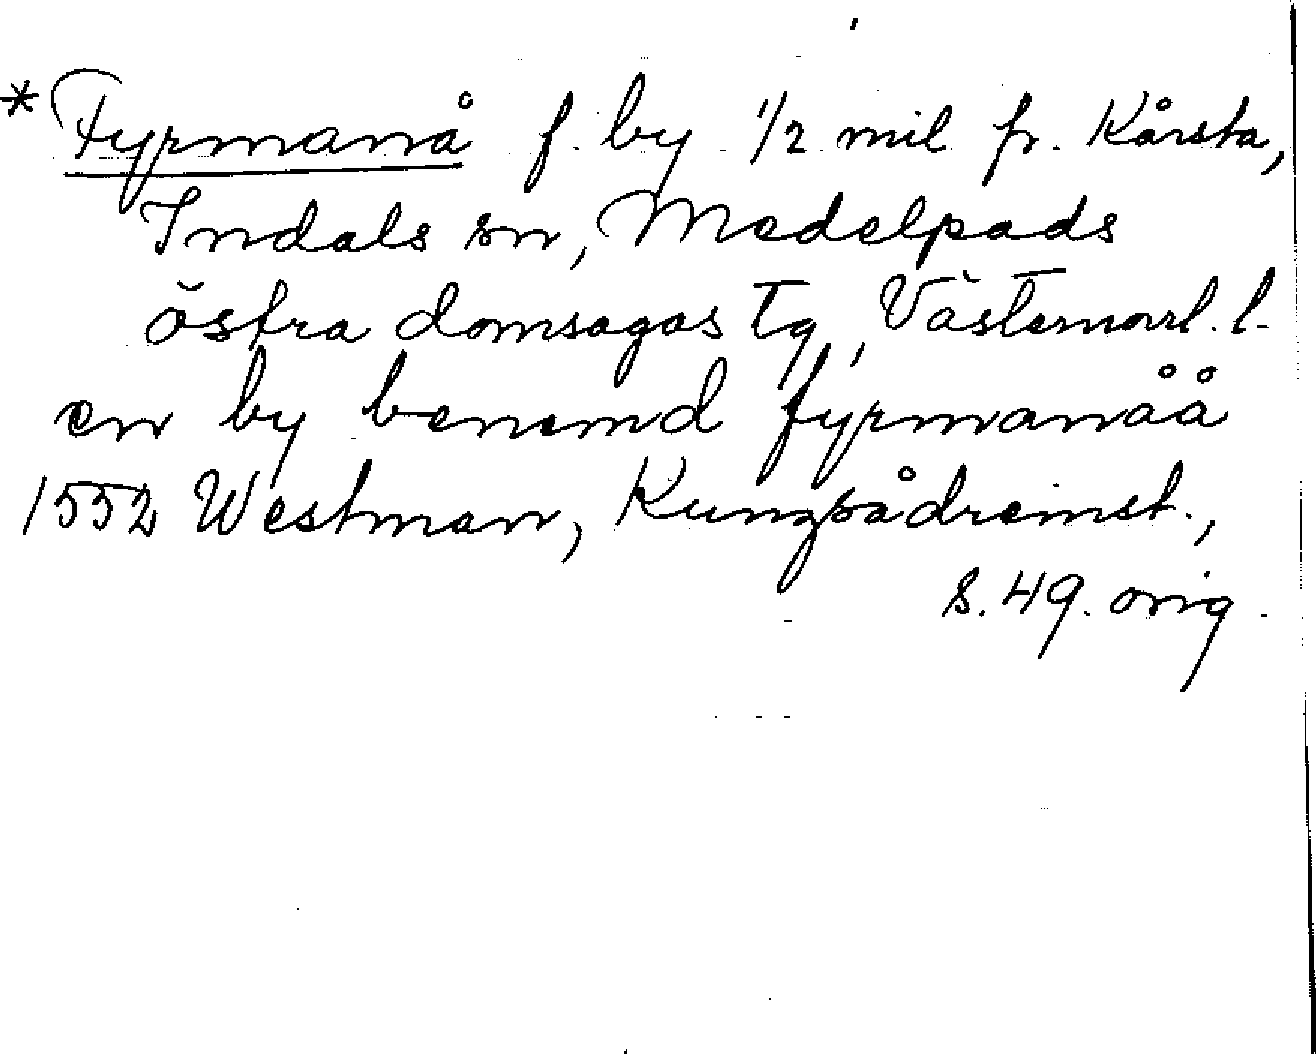 *Fyrmanå f. by 1/2 mil fr. Kårsta,
Indals sn, Medelpads
östra domsagas tg, Västernorrl. l.
en by benemd fyrmanåå
1552 Westman, Kungsådreinst.,
s. 49. orig.